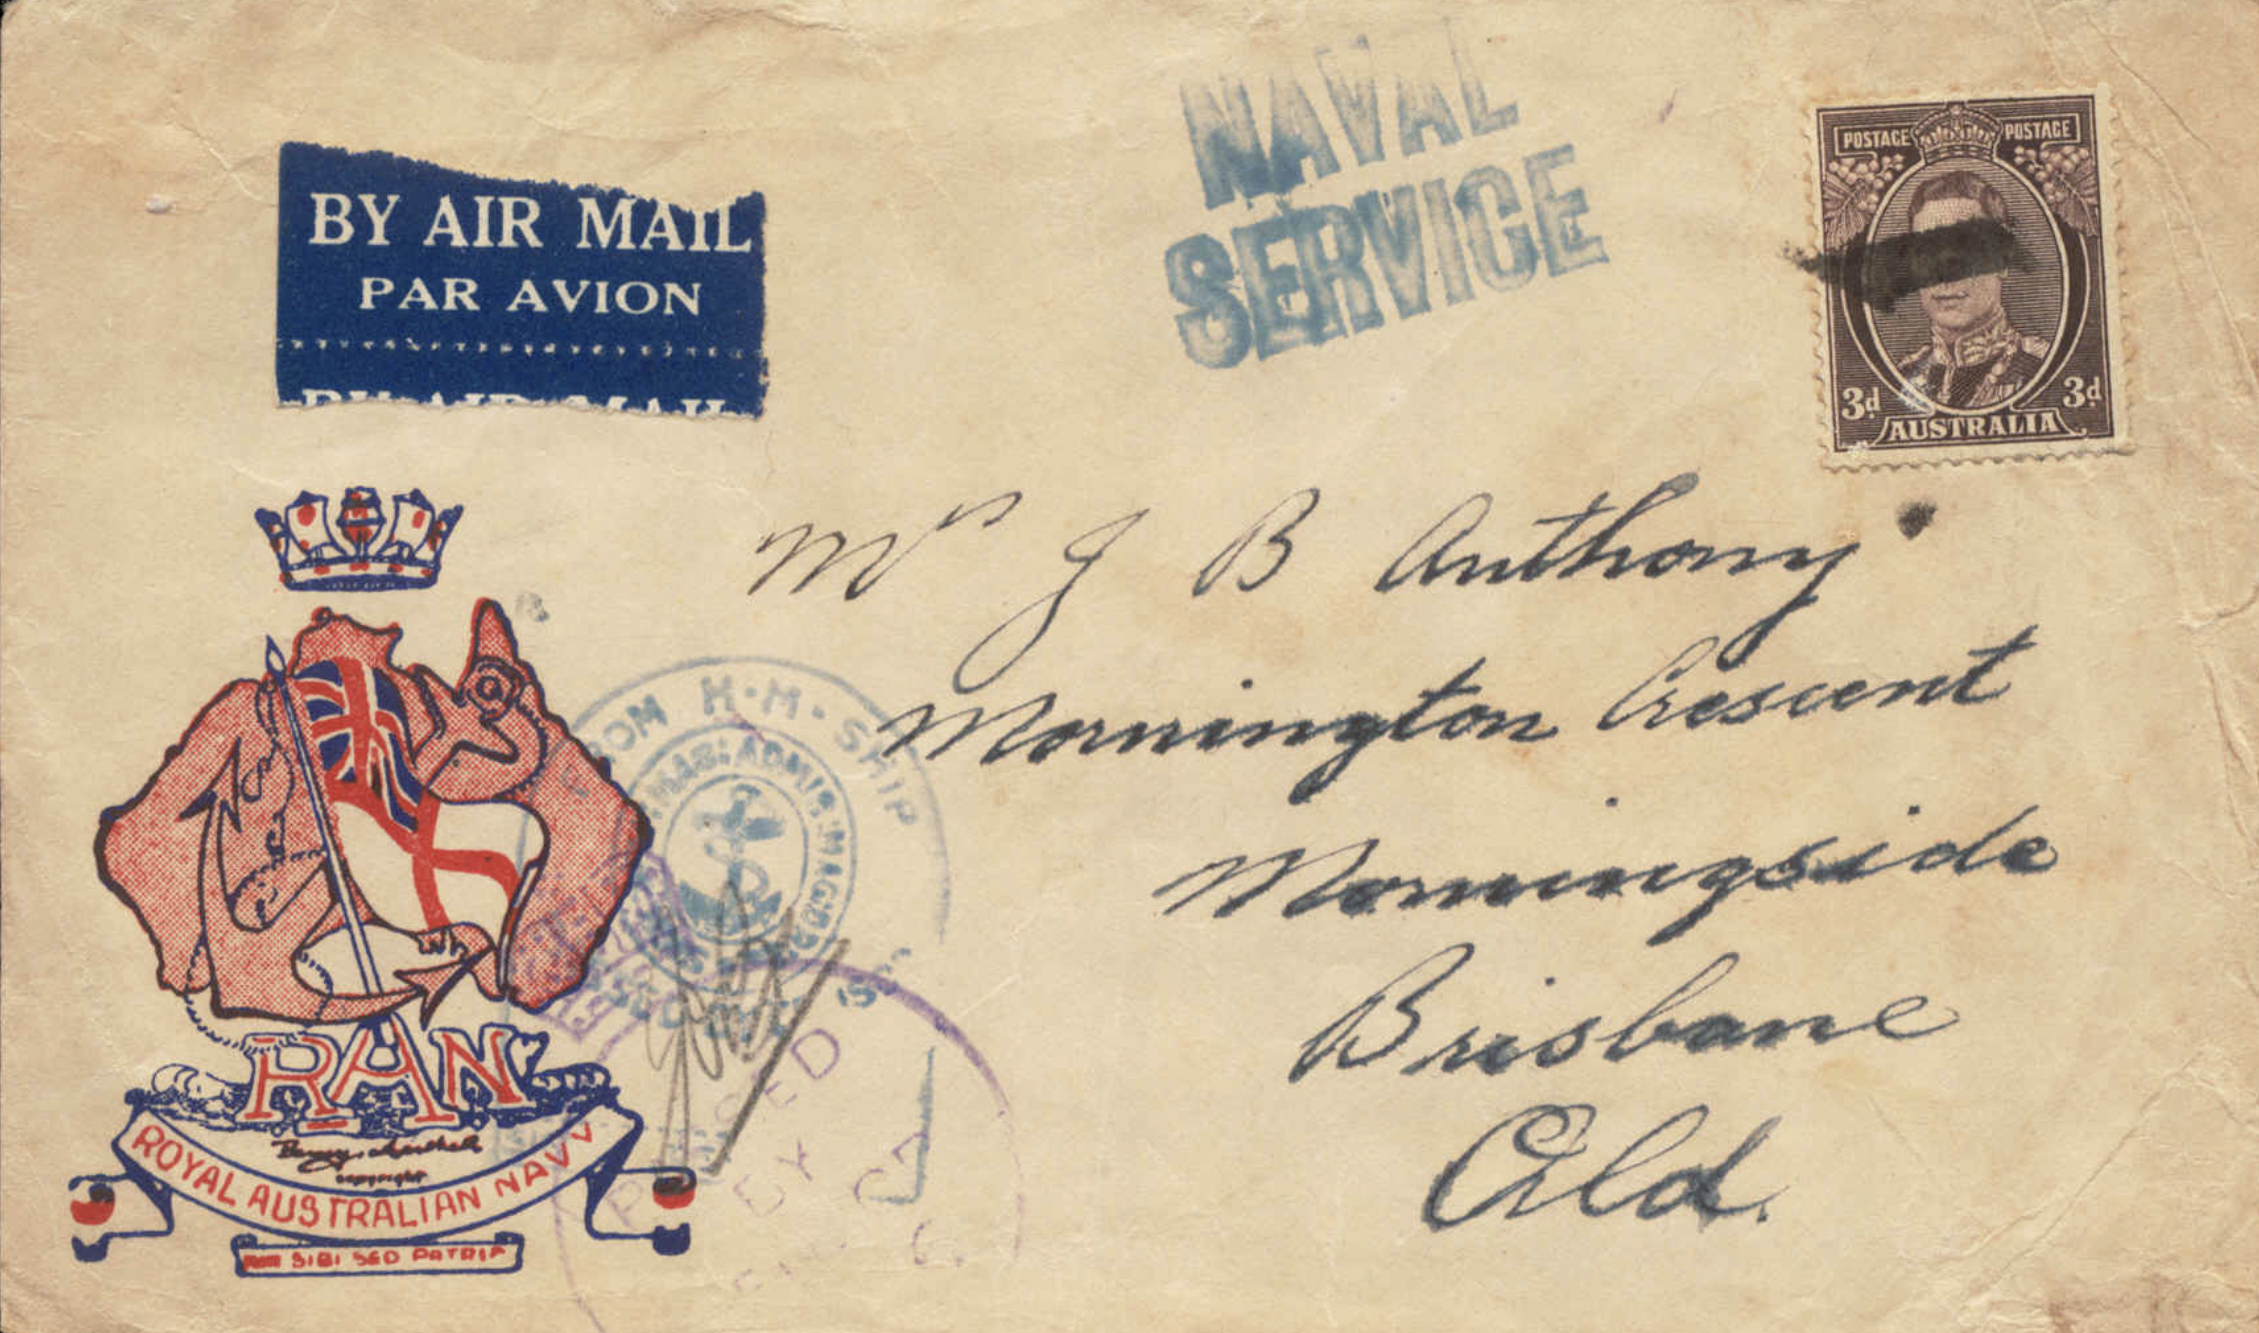 BY AIR MAIL
PAR AVION
BY AIR MAIL
NAVAL
SERVICE
POSTAGE POSTAGE
3d 3d
AUSTRALIA
Mrs J B Anthony
Mornington Crescent
Morningside
Brisbane
Qld.
FROM H·M·SHIP
PASSED
BY
RAN
copyright
ROYAL AUSTRALIAN NAVY
SIBI SED PATRIA